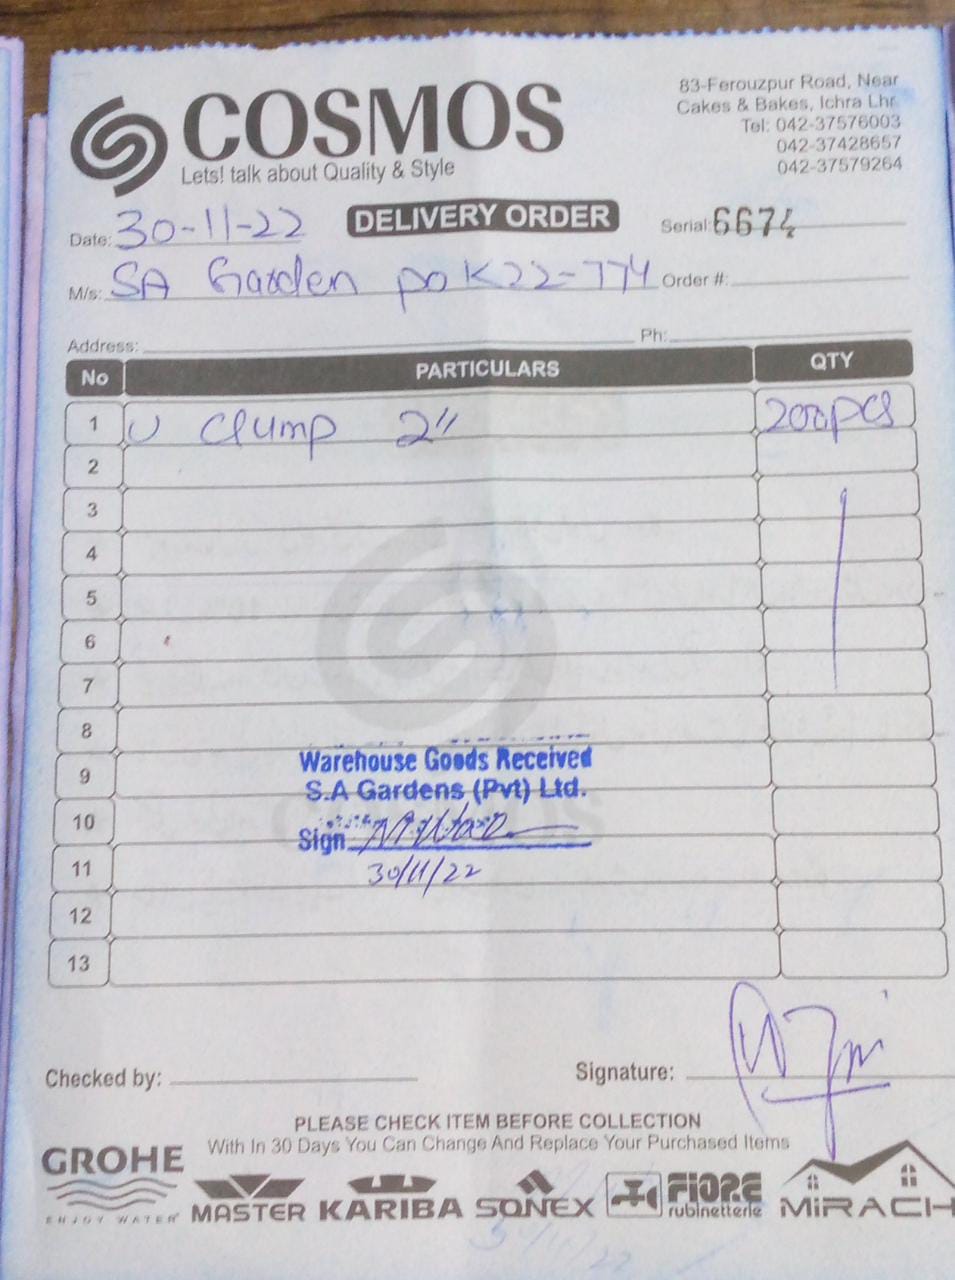 COSMOS
Lets! talk about Quality & Style
83-Ferouzpur Road, Near
Cakes & Bakes, Ichra Lhr.
Tel: 042-37576003
042-37428657
042-37579264
Date: 30-11-22
DELIVERY ORDER
Serial: 6674
M/s: SA Garden po K22-774 Order #:
Address: Ph:
No PARTICULARS QTY
1 U Clump 2" 200pcs
2
3
4
5
6
7
8
9
10
11
12
13
Warehouse Goods Received
S.A Gardens (Pvt) Ltd.
Sign
30/11/22
Checked by: Signature:
PLEASE CHECK ITEM BEFORE COLLECTION
With In 30 Days You Can Change And Replace Your Purchased Items
GROHE
ENJOY WATER
MASTER KARIBA SONEX FIORE rubinetterie MiRACH